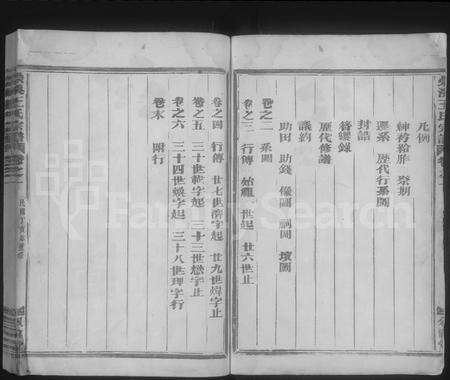 凡例
紳衿粉牌 祭期
歷系 歷代行系圖
封誥
簪纓錄
歷代修譜
議約
助田 助錢 像圖 祠圖 墳圖
卷之二 系圖
卷之三 行傳 始 世起 廿六世止
卷之四 行傳 廿七世濟字起 廿九世煒字止
卷之五 三十世 字起 三十三世 字止
卷之六 三十四世 字起 三十八世理字行
卷末 附行
王氏宗譜 卷之一
民國丁亥年重修
FamilySearch